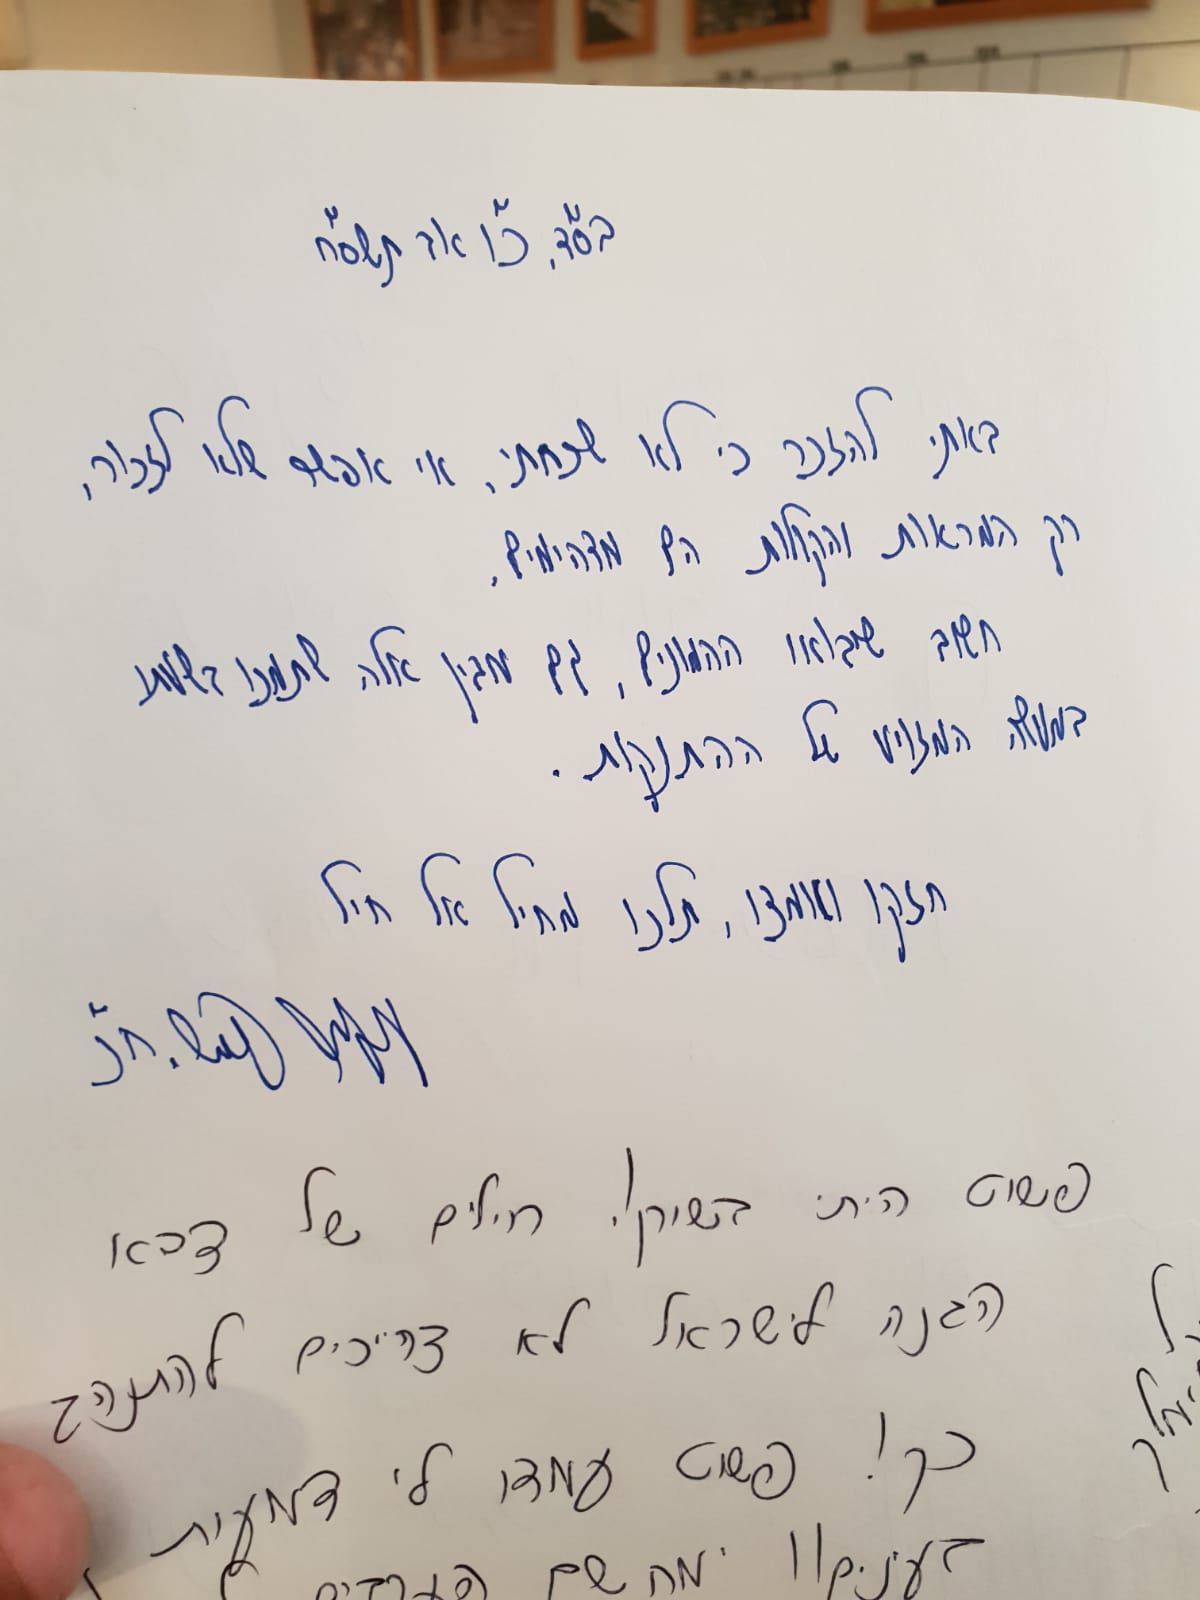 בס"ד, כ"ו אב תשס"ח
באתי להזכר כי לא שכחתי, אי אפשר שלא לזכור,
רק המראות והקולות הם מדהימים.
חשוב שיבואו ההמונים, גם מבין אלה שתמכו בשעתו
במעשה המזויע של ההתנקות.
חזקו ואמצו, תלכו מחיל אל חיל
פשוט הייתי בשוק! חילים של צבא
הגנה לישראל לא צריכים להתנהג
כך! פשוט עמדו לי דמעות
בעינים!! ימח שם